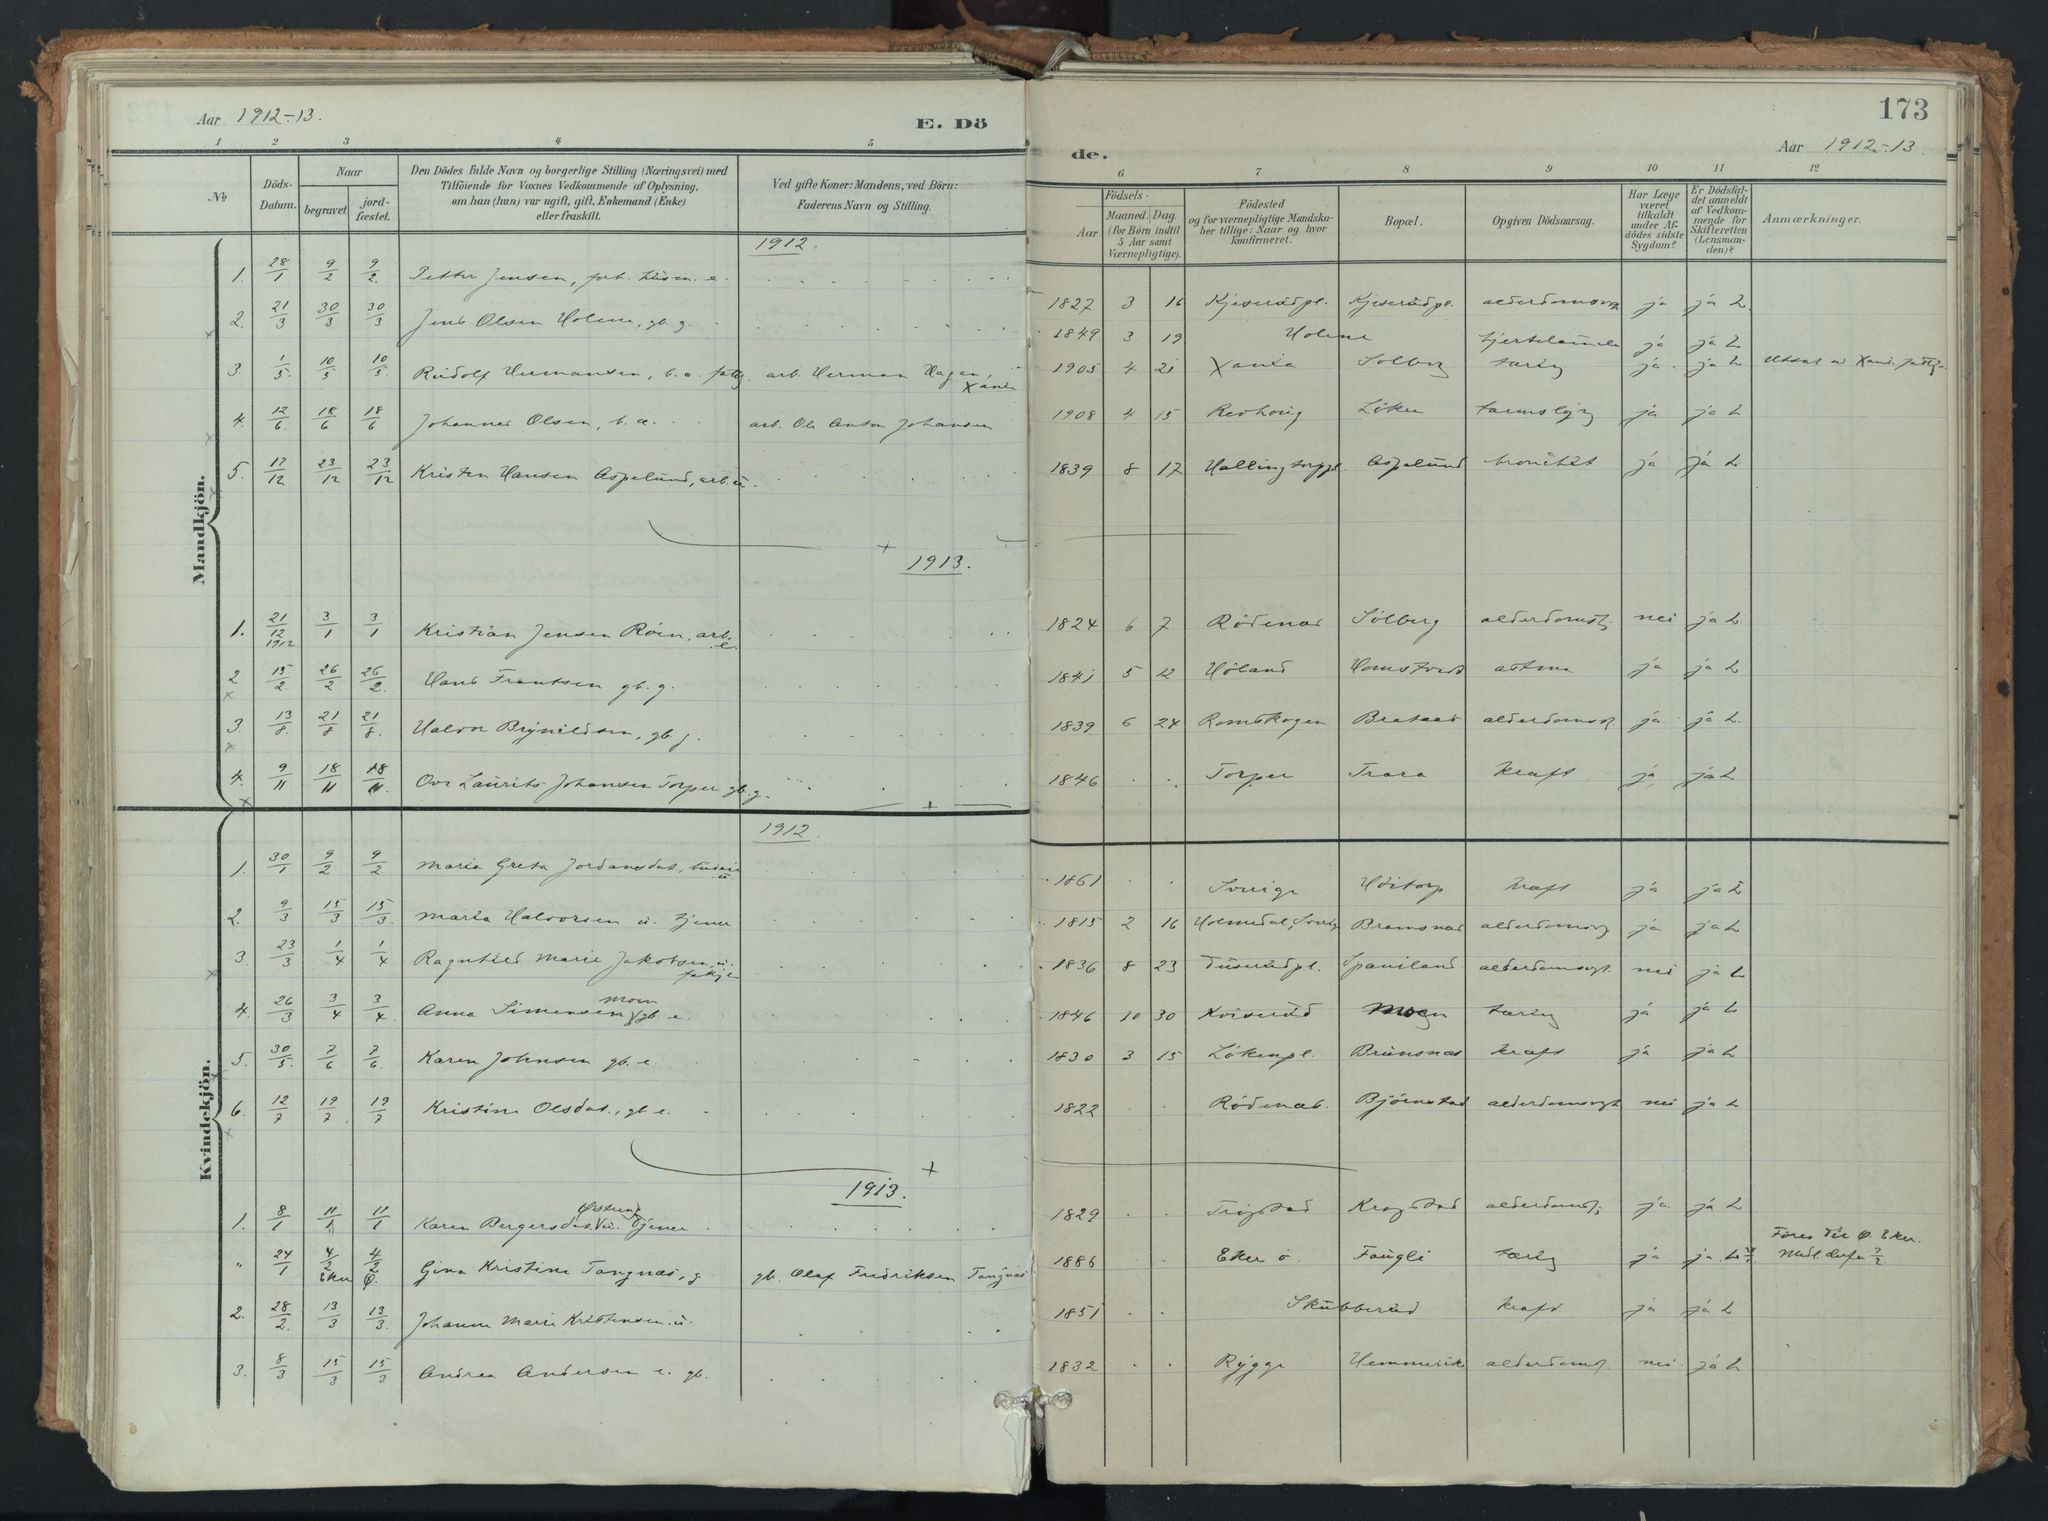 Aar 1912-13.
E. Dö
1 2 3 4 5
№
Döds-Datum.
Naar
begravet
jord-fæstet.
Den Dödes fulde Navn og borgerlige Stilling (Næringsvei) med
Tilföiende for Voxnes Vedkommende af Oplysning,
om han (hun) var ugift, gift, Enkemand (Enke)
eller fraskilt.
Ved gifte Koner: Mandens, ved Börn:
Faderens Navn og Stilling.
Mandkjön.
1912.
1. 28/1 9/2 9/2. Petter Jensen, e.
2. 21/3 30/3 30/3 Jens Olsen Holene, gb. g.
3. 1/5. 10/5 10/5. Rudolf Hermansen, b. a. fattg. arb. Herman Hagen, Xania
4. 12/6. 18/6 18/6 Johannes Olsen, b. a. arb. Ole Anton Johansen
5. 17/12 23/12 23/12 Kristen Hansen Aspelund, arb. u.
1913.
1. 21/12 1912 3/1 3/1 Kristian Jensen Röen, arb. e.
2 15/2. 26/2 26/2. Hans Frantsen gb. g.
3 13/8. 21/8 21/8. Halvor Brynildsen, gb. g.
4. 9/11 18/11 18/11. Ove Laurits Johansen Torper gb. g.
Kvindekjön.
1912.
1. 30/1 9/2 9/2 Maria Greta Jordansdat., u.
2. 9/3 15/3 15/3. Marta Halvorsen u. tjener
3. 23/3 1/4 1/4 Ragnhild Marie Jakobsen, u.
4. 26/3 3/4 3/4. Anna Simensen Moen gb. e.
5. 30/5. 7/6 7/6. Karen Johnsen gb. e.
6. 12/7 19/7 19/7 Kristine Olsdat., gb. e.
1913.
1. 8/1 11/1 11/1 Karen Bergersdat. u. tjener
" 24/1 4/2 4/2 Eker Ø. Gina Kristine Tangnæs, g. gb. Olaf Fredriksen Tangnæs
2. 28/2. 13/3 13/3. Johanne Marie Kristensen. u.
3. 8/3 15/3 15/3 Andrea Andersen e. gb.
173
de.
Aar 1912-13.
6 7 8 9 10 11 12
Födsels-
Aar
Maaned. Dag.
(for Börn indtil
5 Aar samt
Værnepligtige).
Födested
og for værnepligtige Mandska-
ber tillige: Naar og hvor
konfirmeret.
Bopæl.
Opgiven Dödsaarsag.
Har Læge
været
tilkaldt
under Af-
dödes sidste
Sygdom?
Er Dödsfal-
det anmeldt
af Vedkom-
mende for
Skifteretten
(Lensman-
den)?
Anmærkninger.
1827 3 16 Kjeserudpl. Kjeserudpl. ja ja L.
1849 3 19 Holene ja ja L
1905 4 21 Xania Solberg tæring ja. ja L
1908 4 15 Revhoug Löken ja ja L
1839 8 17 Aspelund bronchit ja ja L.
1824 6 7 Rödenæs Solberg alderdomss. nei ja L.
1841 5 12 Höland astma ja ja L
1839 6 24 Romskogen alderdomss. ja. ja L.
1846 . . Torper Trara kræft ja ja L
1861 . . Sverige kræft ja ja L
1815 2 16 Holmedal, Sverige Bramsnæs alderdomssvg ja ja L
1836 8 23 Tuserudpl. Spaniland alderdomssvgt. nei ja L
1846 10 30 Kviserud Moen tæring ja ja L
1830 3 15 Lökenpl. Brunsnæs kræft ja ja L
1822 . . Rödenæs. Björnstad alderdomssvgt nei ja L
1829 . . Trögstad Krogstad alderdomss. ja. ja L
1886 . . Eker ö Faugli tæring ja ja. L
Föres til Ø. Eker.
1851 . . Skubberud kræft ja ja L
1832 . . Rygge alderdomss. nei. ja L